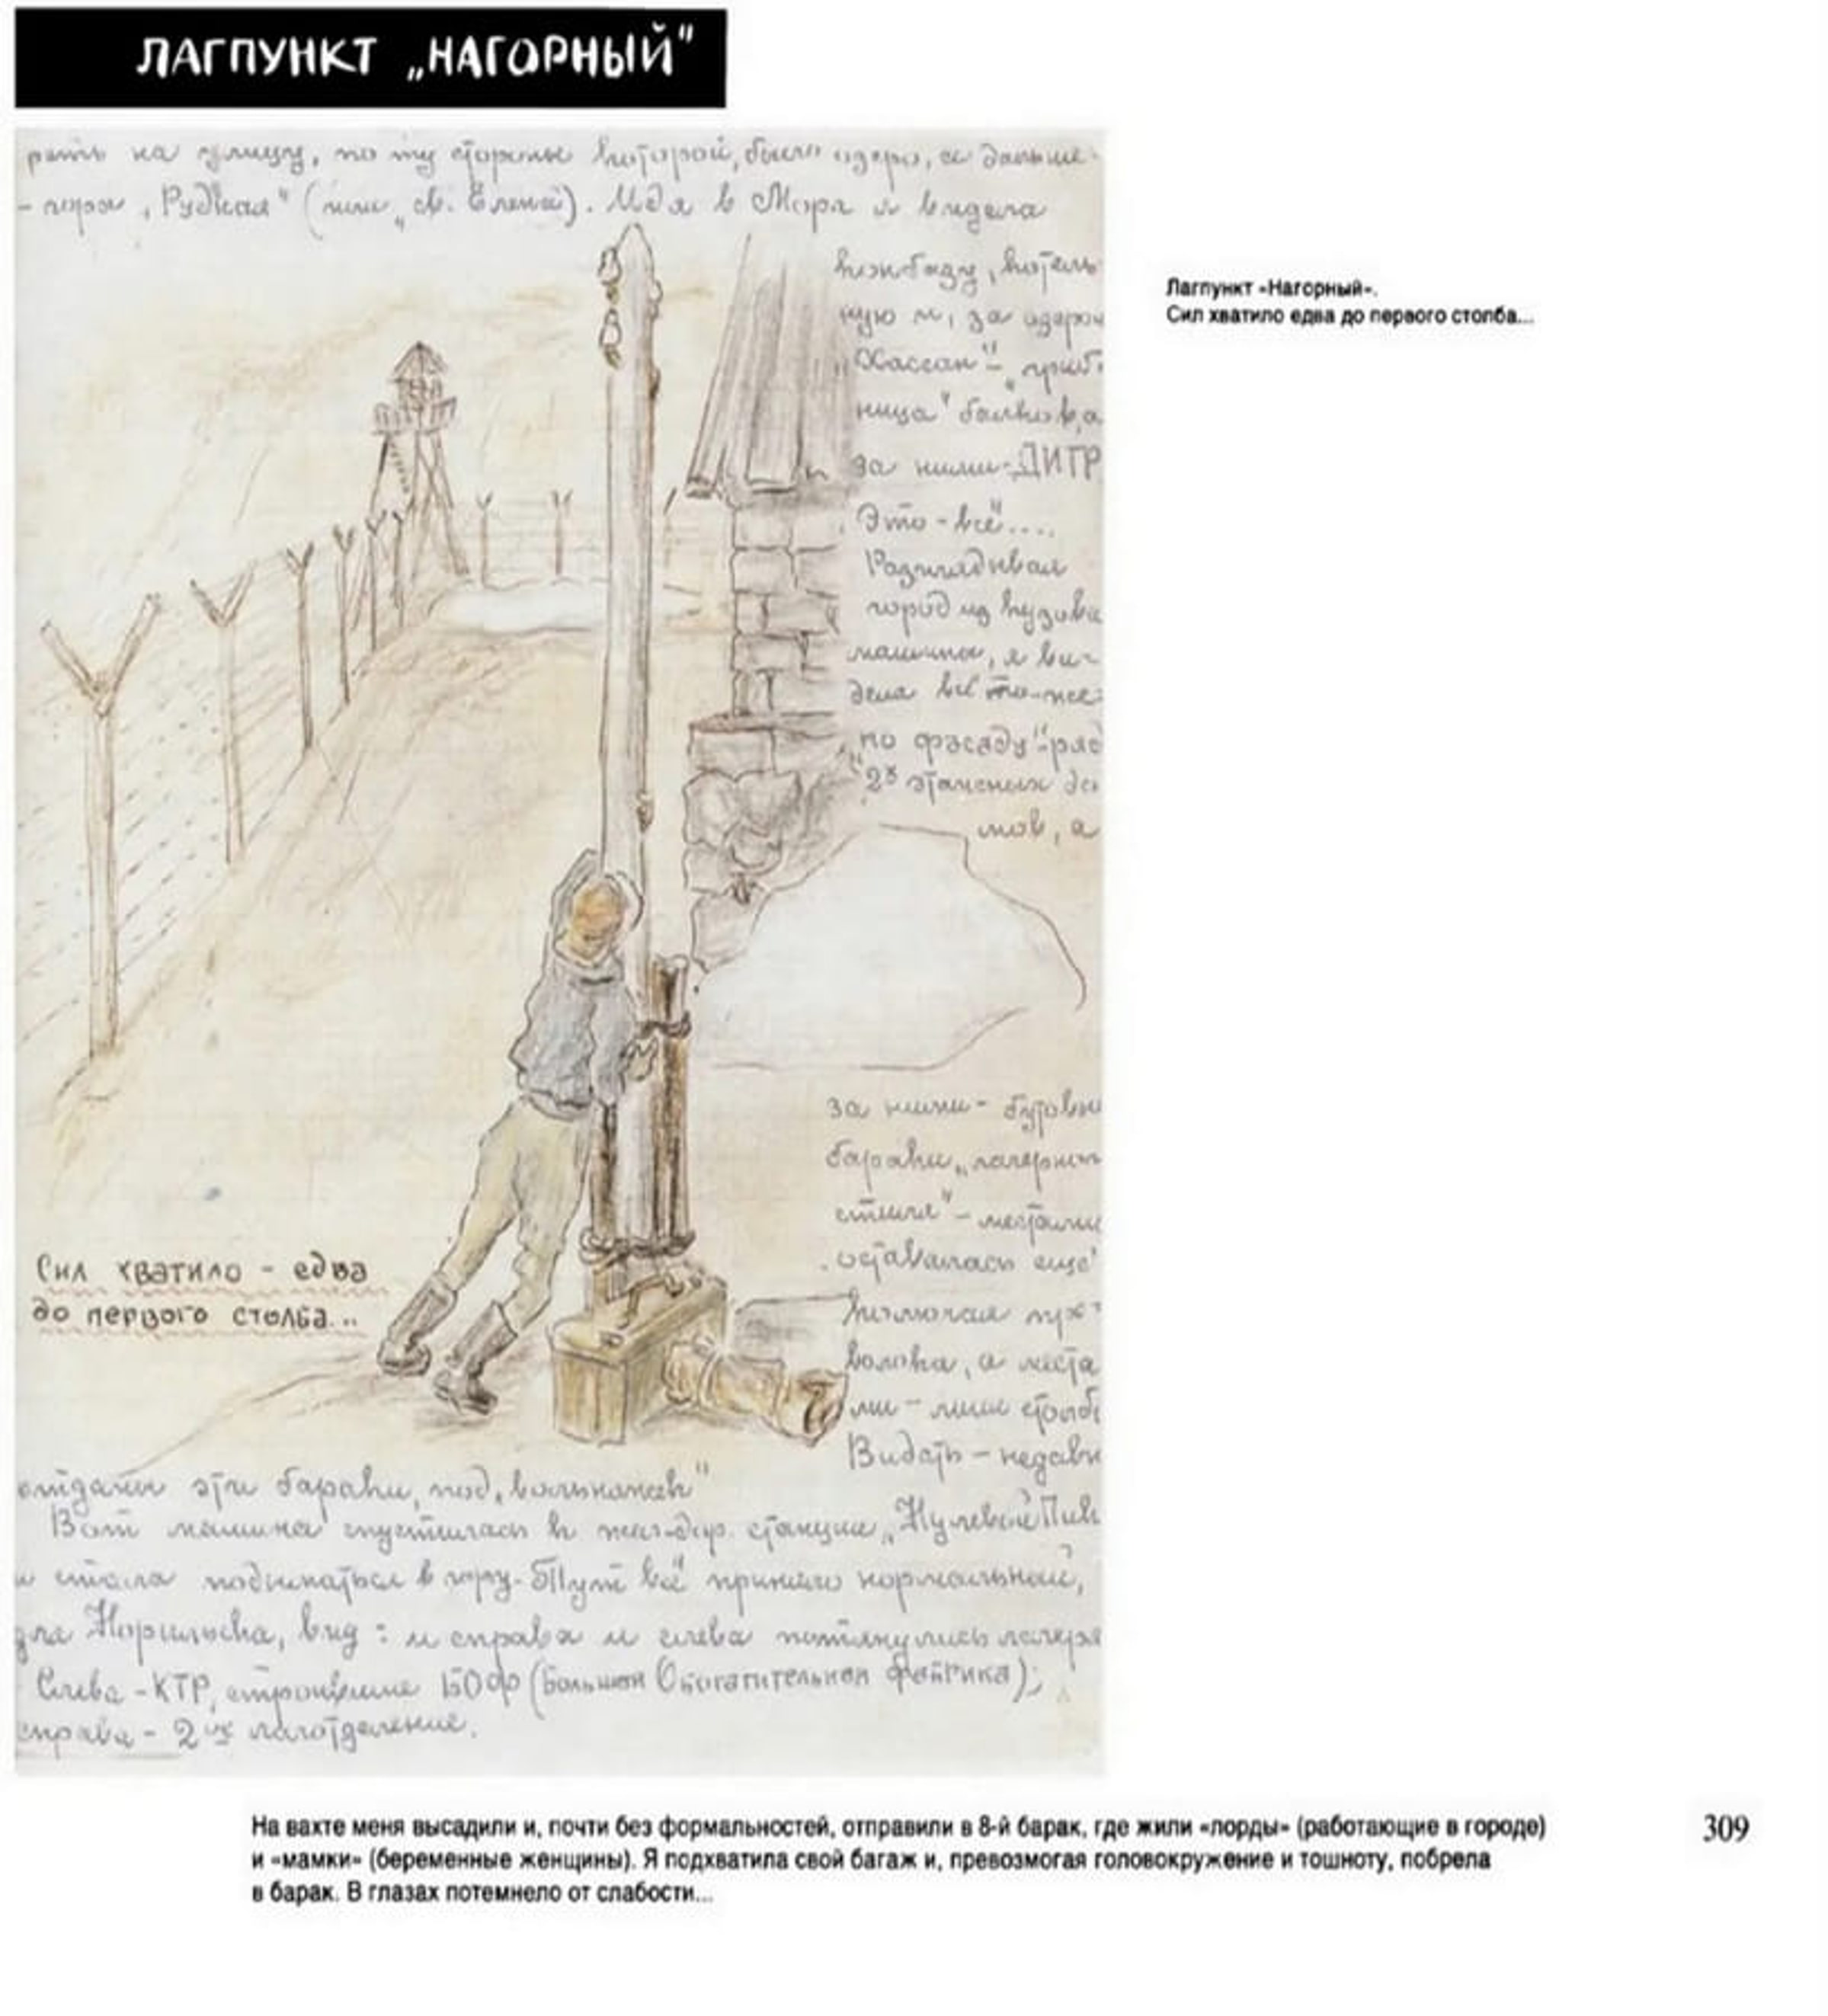 ЛАГПУНКТ „НАГОРНЫЙ"
на улицу, по ту сторону которой, было озеро, а дальше-
- гора „Рудная" (или „св. Елены). Идя в Морг я видела
конбазу, котель-
ную и, за озером
„Хассан" -
ница" балков, а
за ними - ДИТР
Это - всё....
Разглядывая
город из кузова
машины, я ви-
дела всё то-же:
„по фасаду" - ряд
2х этажных до
мов, а
за ними - бутовые
бараки „лагерного
стиля" - местами
оставалась ещё
колючая про-
волока, а места
ми - лишь столбы
Видать - недавн
отданы эти бараки под „вольняшек"
Вот машина спустилась к жел-дор. станции „Нулевой Пик
и стала подыматься в гору. Тут всё приняло нормальный,
для Норильска, вид: и справа и слева потянулись лагеря
Слева - КТР, строящие БОФ (Большая Обогатительная Фабрика);
справа - 2ое лаготделение.
Сил хватило - едва
до первого столба...
Лагпункт «Нагорный».
Сил хватило едва до первого столба...
На вахте меня высадили и, почти без формальностей, отправили в 8-й барак, где жили «лорды» (работающие в городе)
и «мамки» (беременные женщины). Я подхватила свой багаж и, превозмогая головокружение и тошноту, побрела
в барак. В глазах потемнело от слабости...
309